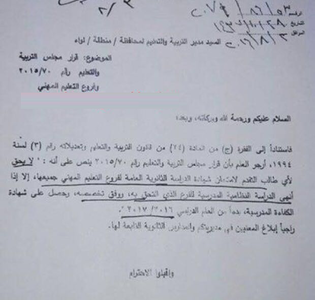 السيد مدير التربية والتعليم لمحافظة / منطقة / لواء
الموضوع: قرار مجلس التربية
والتعليم رقم ٢٠١٥/٧٠
وفروع التعليم المهني
السلام عليكم ورحمة الله وبركاته، وبعد
فاستناداً إلى الفقرة (ج) من المادة (٢٤) من قانون التربية والتعليم وتعديلاته رقم (٣) لسنة
١٩٩٤، أرجو العلم بأن قرار مجلس التربية والتعليم رقم ٢٠١٥/٧٠ ينص على أنه: " لا يحق
لأي طالب التقدم لامتحان شهادة الدراسة الثانوية العامة لفروع التعليم المهني جميعها، إلا إذا
أنهى الدراسة النظامية المدرسية للفرع الذي التحق به، ووفق تخصصه، وحصل على شهادة
الكفاءة المدرسية، بدءاً من العام الدراسي ٢٠١٧/٢٠١٦ ".
راجياً إبلاغ المعنيين في مديريتكم والمدارس الثانوية التابعة لها.
واقبلوا الاحترام